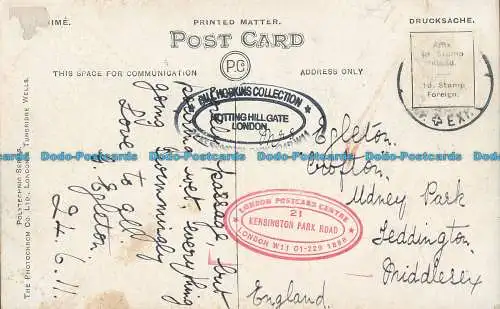 IMPRIMÉ.
PRINTED MATTER.
DRUCKSACHE.
POST CARD
P.C
THIS SPACE FOR COMMUNICATION
ADDRESS ONLY
Affix
½d. Stamp
Inland.
1d. Stamp
Foreign.
EXE
BILL HOPKINS COLLECTION
NOTTING HILL GATE
LONDON.
LONDON POSTCARD CENTRE
21
KENSINGTON PARK ROAD
LONDON W11 01-229 1888
passage but
wet everything
going Bloomingly
Love to all
Egleton.
24.6.11
Egleton.
Crofton.
Udney Park
Teddington.
Middlesex
England
POLYTECHNIC SERIES.
THE PHOTOCHROM CO. LTD., LONDON & TUNBRIDGE WELLS.
Dodo-Postcards Dodo-Postcards Dodo-Postcards Dodo-Postcards Dodo-Postcards